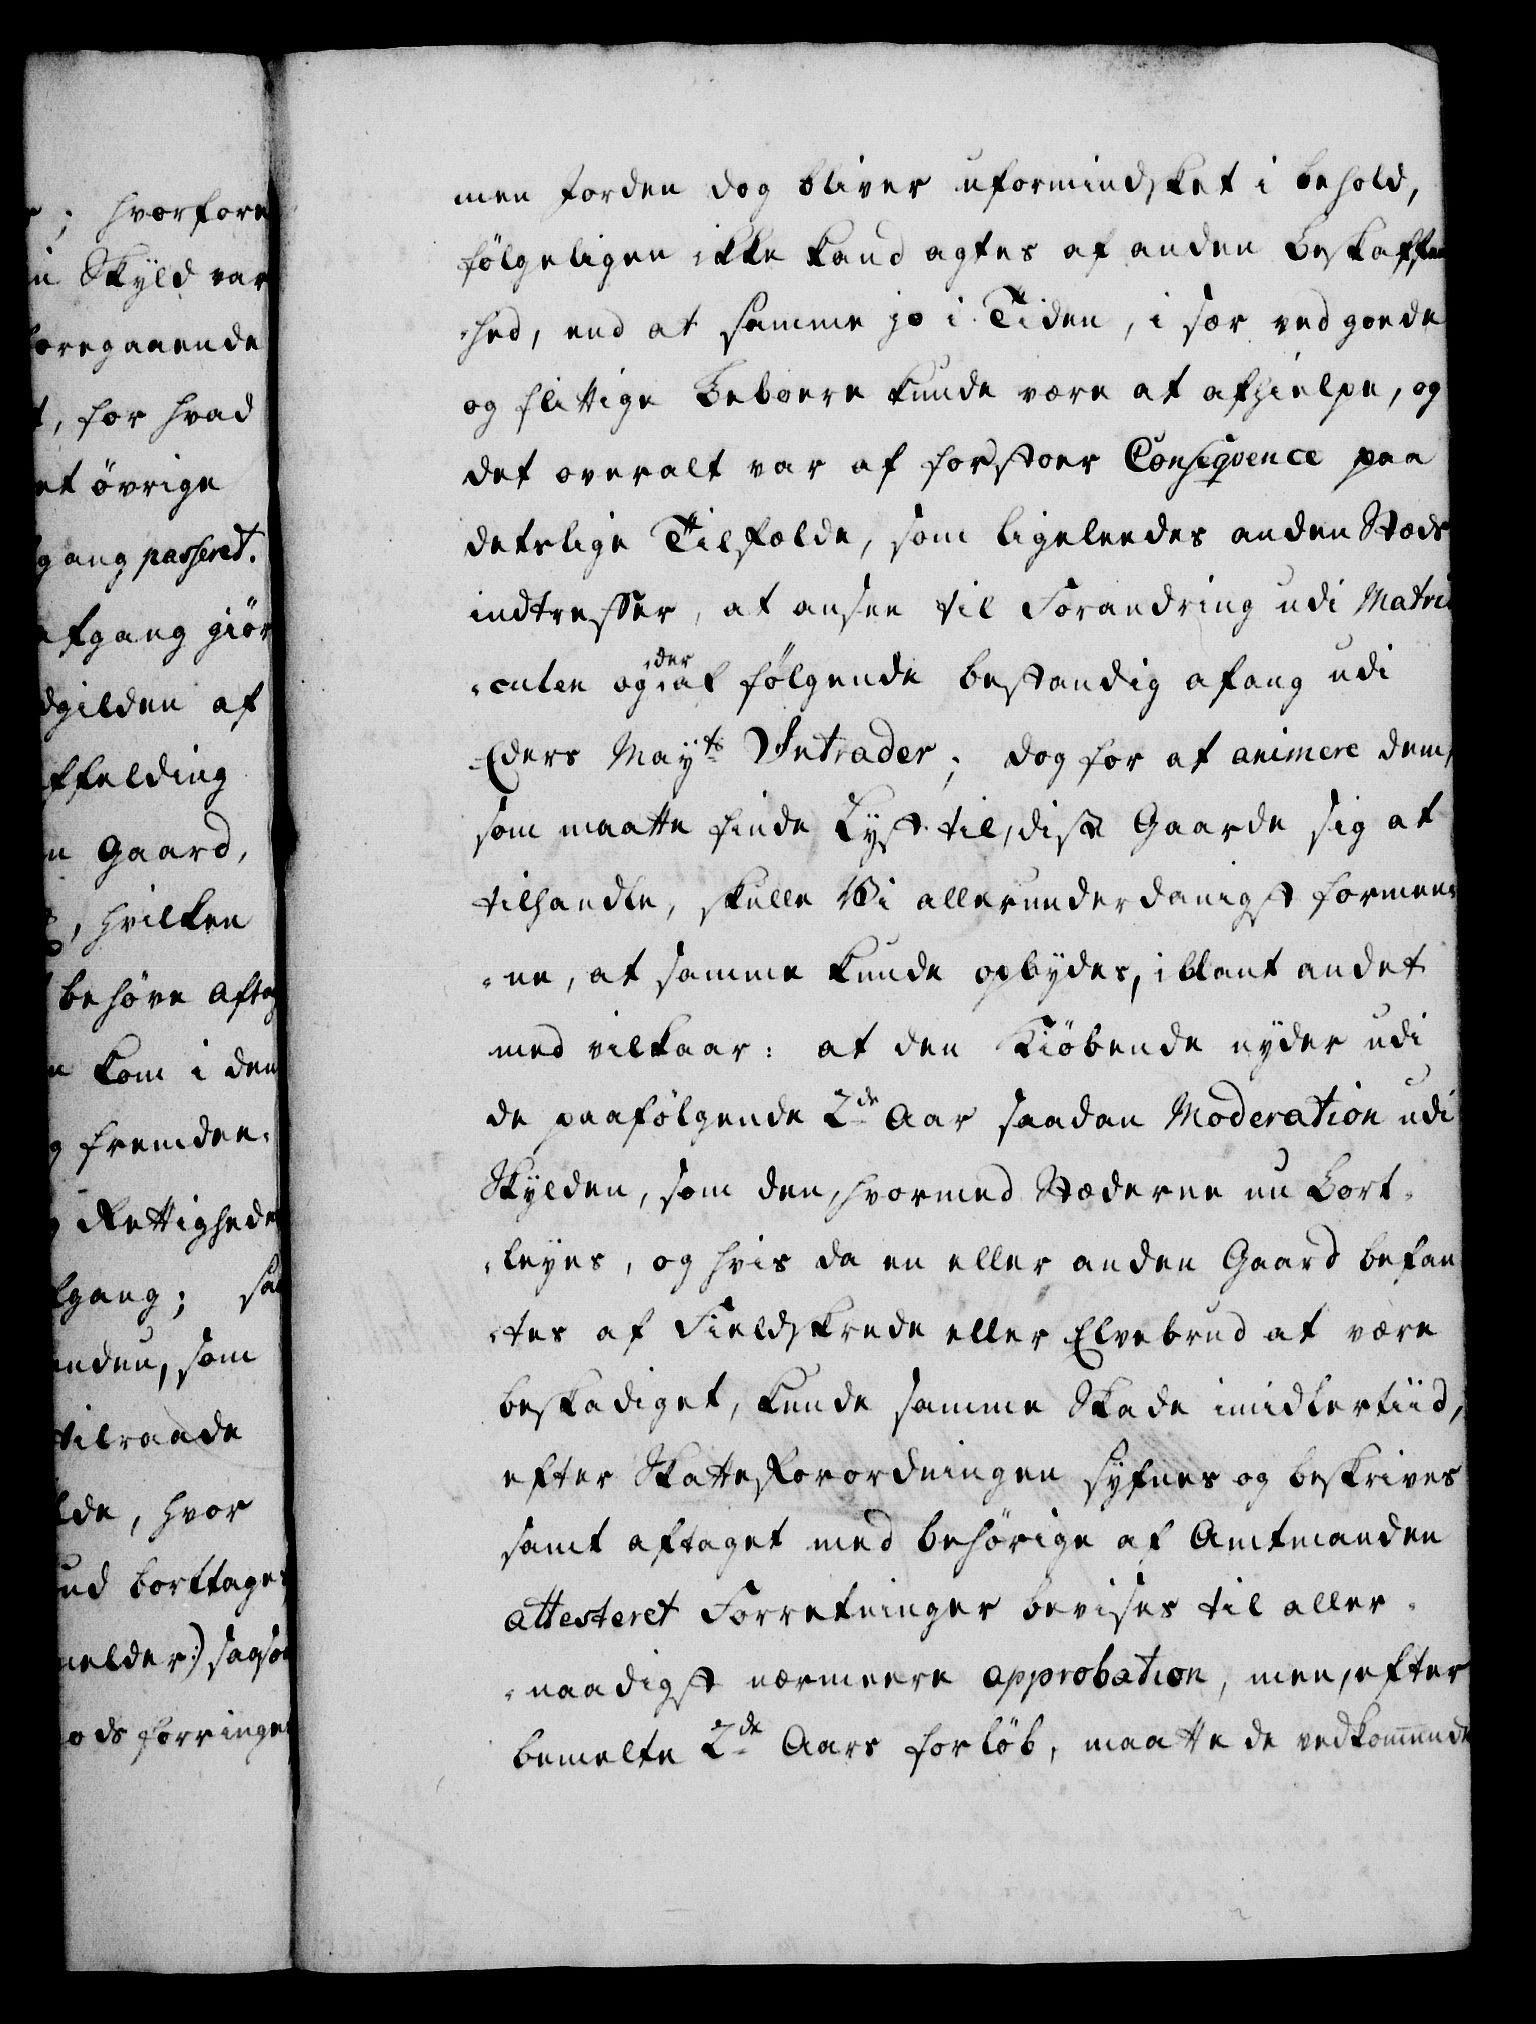 ; hvorfore
n Skyld var
foregaaende
t, for hvad
et övrige
gang passeret.
afgang giör
dgilden af
ffelding
n Gaard,
, hvilken
behöve aftag
n kom i den
g fremdee,
Rettighede
fgang; saa
nden, som
tilraade
lde, hvor
ud borttages
melder:) sagsø
ods forringe
men Jorden dog bliver uformindsket i behold,
fölgeligen ikke kand agtes af anden beskaffen
-hed, end at samme jo i Tiden, i sær ved goede
og flittige Beboere kunde være at afhielpe, og
det overalt var af for stoer Conseqvence paa
detslige Tilfælde, som ligeleedes anden Stæds
indtreffer, at ansee til Forandring udi Matri
-culen og der af fölgende bestandig afang udi
Eders Mayts Intrader; dog for at animere dem,
som maatte finde Lyst til disse Gaarde sig at
tilhandle, skulle Vi allerunderdanigst formee
-ne, at samme kunde opbydes, iblant andet
med vilkaar: at den Kiöbende nyder udi
de paafölgende 2de Aar saadan Moderation udi
Skylden, som den, hvormed Stæderne nu Bort-
-leyes, og hvis da en eller anden Gaard befan
-tes af Fieldskrede eller Elvebrud at være
beskadiget, kunde samme Skade imidlertiid,
efter Skatteforordningen syfnes og beskrives
samt aftaget med behörige af Amtmanden
attesteret Forretninger bevises til aller-
-naadigst nærmere approbation, men, efter
bemelte 2de Aars forlöb, maatte de vedkommende